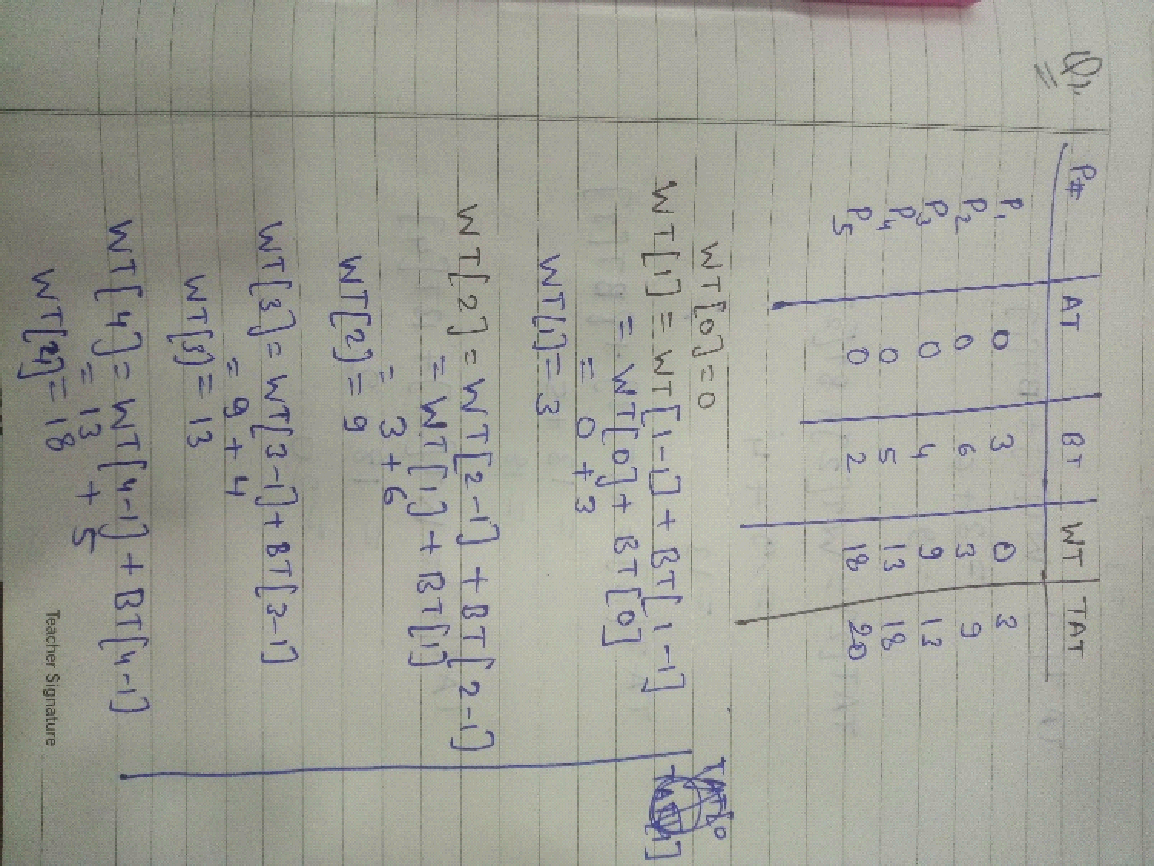 Q1.
P# AT BT WT TAT
P1 0 3 0 3
P2 0 6 3 9
P3 0 4 9 13
P4 0 5 13 18
P5 0 2 18 20
WT[0]=0
WT[1] = WT[1-1] + BT[1-1]
= WT[0] + BT[0]
= 0 + 3
WT[1] = 3
WT[2] = WT[2-1] + BT[2-1]
= WT[1] + BT[1]
= 3+6
WT[2] = 9
WT[3] = WT[3-1] + BT[3-1]
= 9 + 4
WT[3] = 13
WT[4] = WT[4-1] + BT[4-1]
= 13 + 5
WT[4] = 18
Teacher Signature